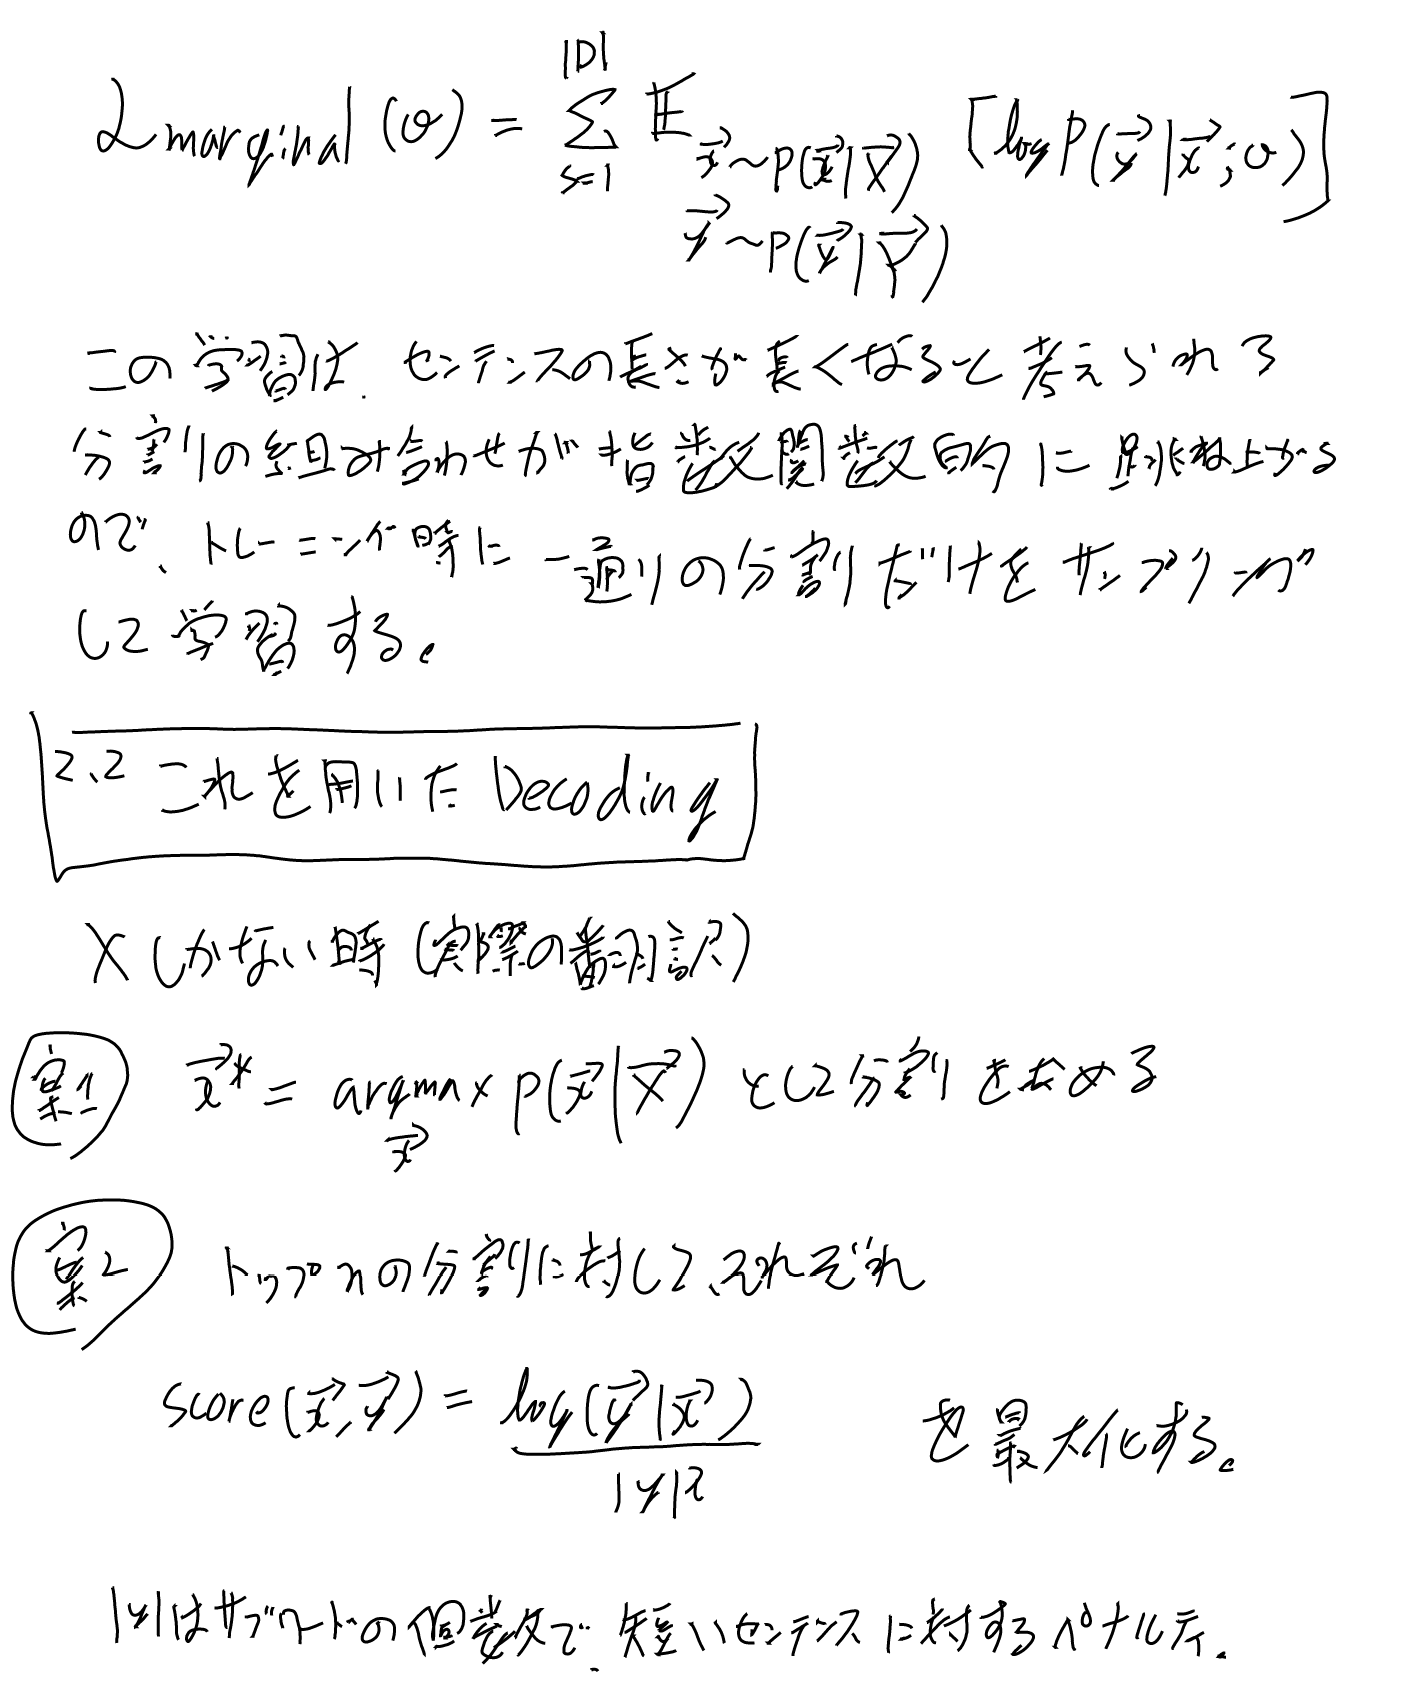 L marginal (θ) = Σ_{s=1}^{|D|} E_{x⃗~P(x⃗|X⃗), y⃗~P(y⃗|Y⃗)} [log P(y⃗|x⃗;θ)]
この学習は、センテンスの長さが長くなると考えられる
分割りの組み合わせが指数関数的に跳ね上がる
ので、トレーニング時に一通りの分割りだけをサンプリング
して学習する。
2.2 これを用いた Decoding
Xしかない時 (実際の翻訳)
案1 x⃗* = argmax_{x⃗} P(x⃗|X⃗) として分割りを求める
案2 トップnの分割りに対して、それぞれ
score(x⃗,y⃗) = log(y⃗|x⃗) / |y|^λ を最大化する。
|y|はサブワードの個数で、短いセンテンスに対するペナルティ.